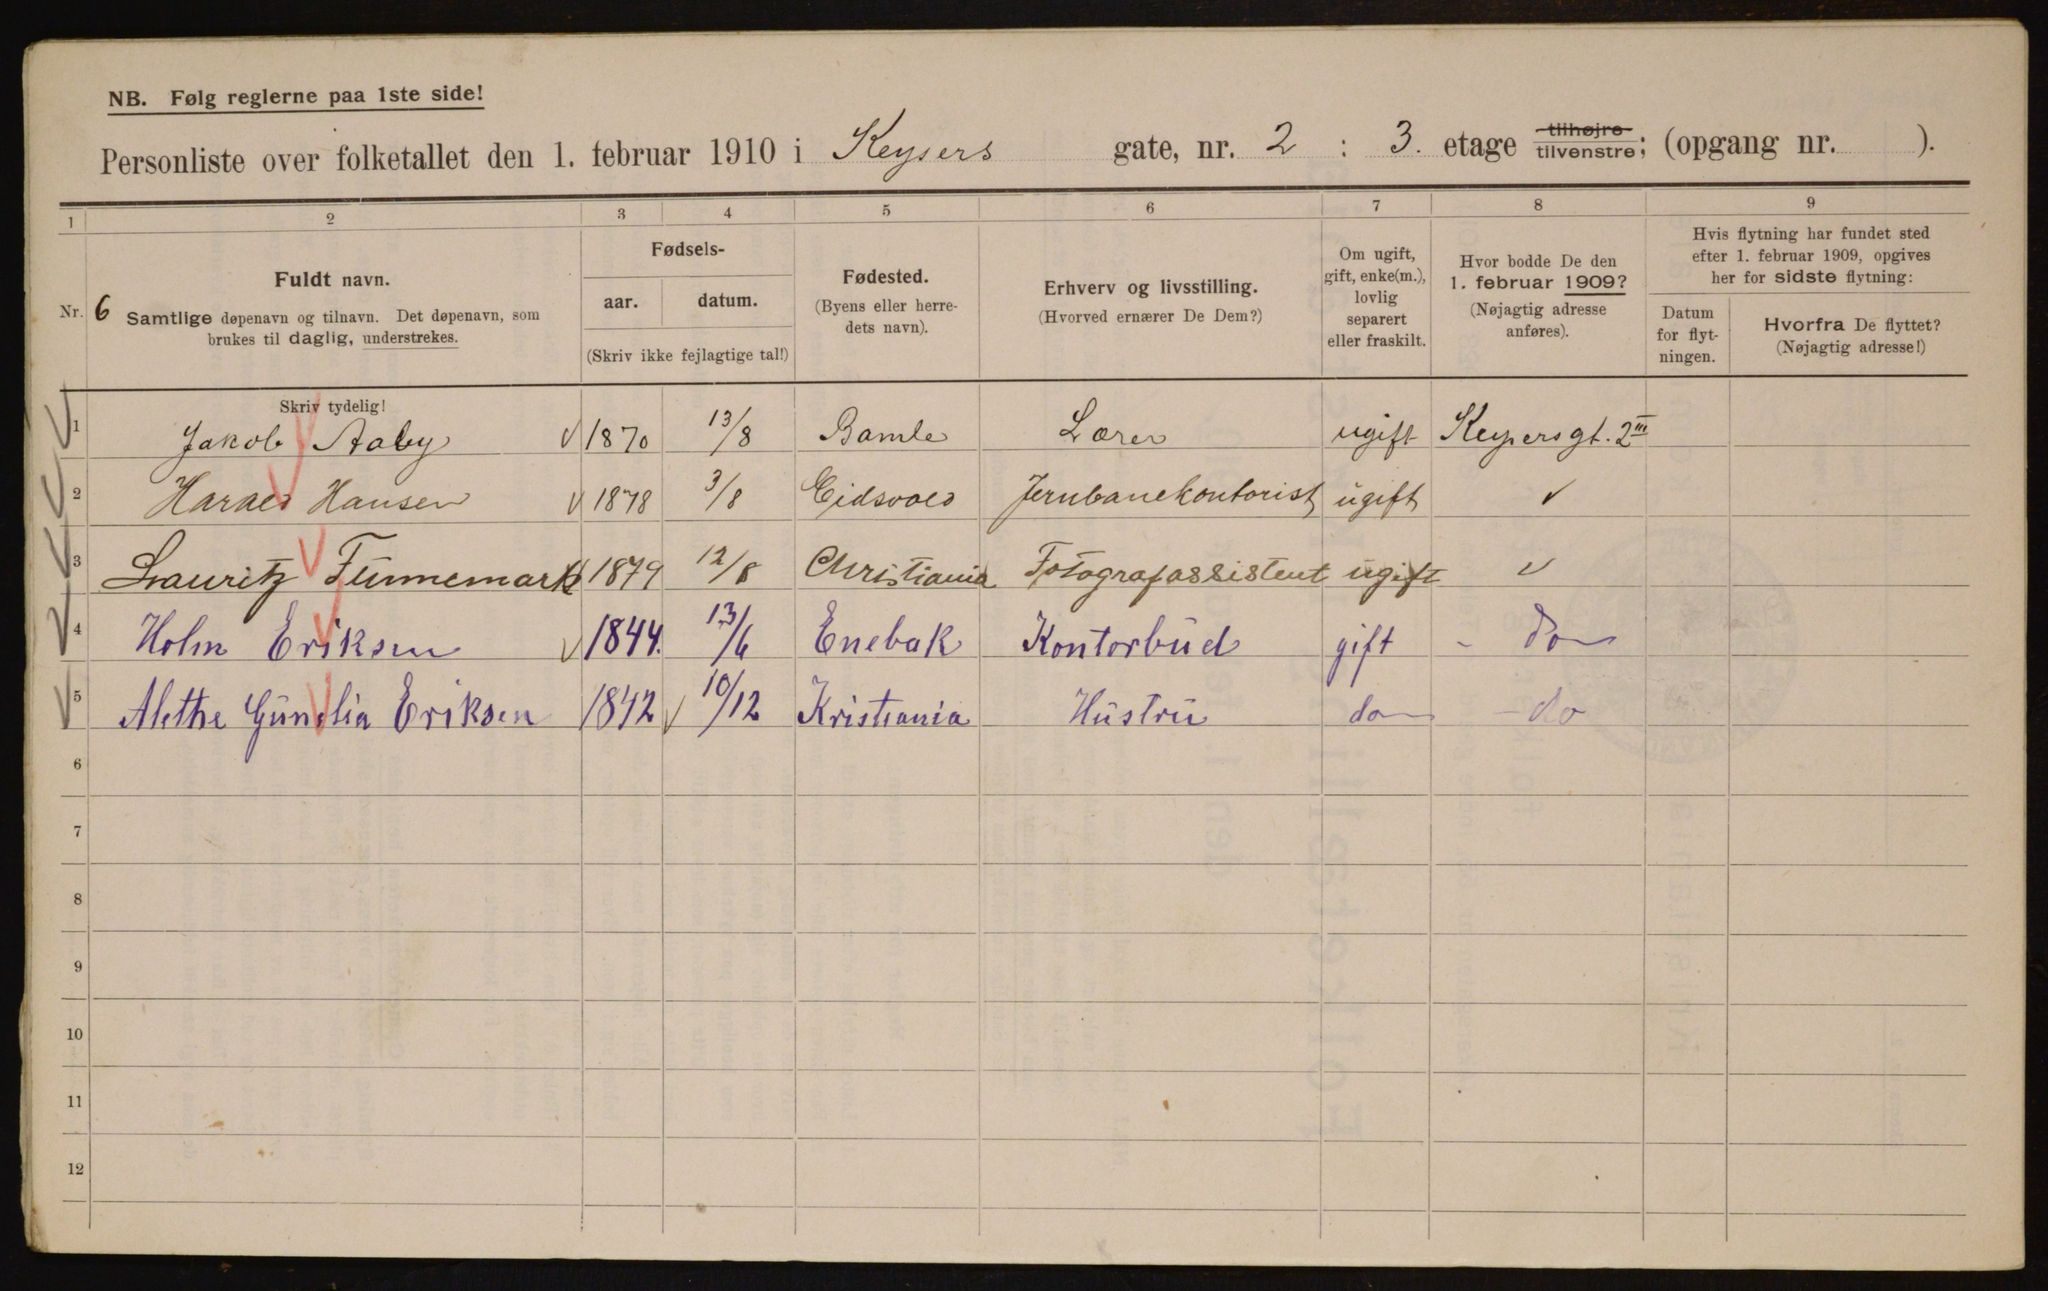 NB. Følg reglerne paa 1ste side!
Personliste over folketallet den 1. februar 1910 i Keysers gate, nr. 2 : 3. etage tilhøjre tilvenstre; (opgang nr. ).
1 2 3 4 5 6 7 8 9
Nr. 6
Fuldt navn.
Samtlige døpenavn og tilnavn. Det døpenavn, som
brukes til daglig, understrekes.
Fødsels-
aar. datum.
(Skriv ikke fejlagtige tal!)
Fødested.
(Byens eller herre-
dets navn).
Erhverv og livsstilling.
(Hvorved ernærer De Dem?)
Om ugift,
gift, enke(m.),
lovlig
separert
eller fraskilt.
Hvor bodde De den
1. februar 1909?
(Nøjagtig adresse
anføres).
Hvis flytning har fundet sted
efter 1. februar 1909, opgives
her for sidste flytning:
Datum
for flyt-
ningen.
Hvorfra De flyttet?
(Nøjagtig adresse!)
Skriv tydelig!
1 Jakob Aaby 1870 13/8 Bamle Lærer ugift Keysersgt. 2 III
2 Harald Hansen 1878 3/8 Eidsvold Jernbanekontorist ugift
3 Lauritz Finnemark 1879 12/8 Christiania Fotografassistent ugift
4 Holm Eriksen 1844. 13/6 Enebak Kontorbud gift - do
5 Alethe Gunelia Eriksen 1842 10/12 Kristiania Hustru do - do
6
7
8
9
10
11
12